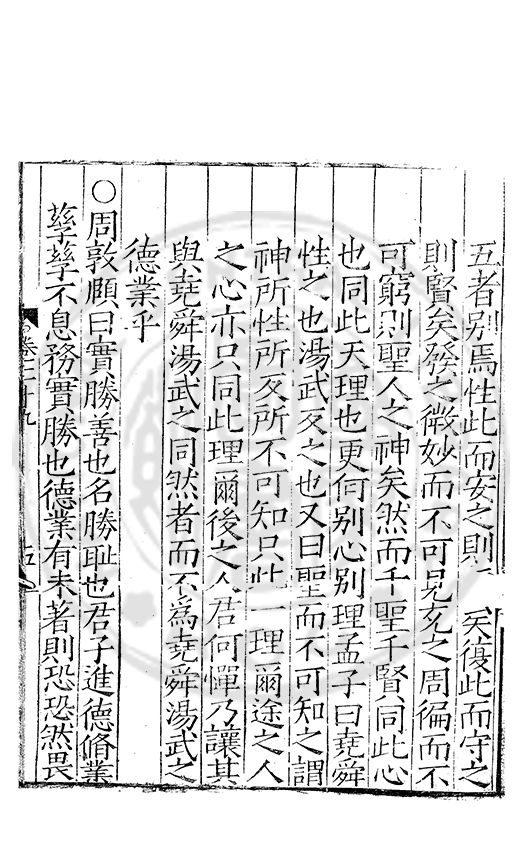 五者别焉性此而安之則 矣復此而守之
則賢矣發之微妙而不可見充之周徧而不
可窮則聖人之神矣然而千聖千賢同此心
也同此天理也更何别心别理孟子曰堯舜
性之也湯武反之也又曰聖而不可知之謂
神所性所反所不可知只此一理爾途之人
之心亦只同此理爾後之人君何憚乃讓其
與堯舜湯武之同然者而不為堯舜湯武之
德業乎
○周敦頥曰實勝善也名勝耻也君子進德脩業
孳孳不息務實勝也德業有未著則恐恐然畏
卷二十九